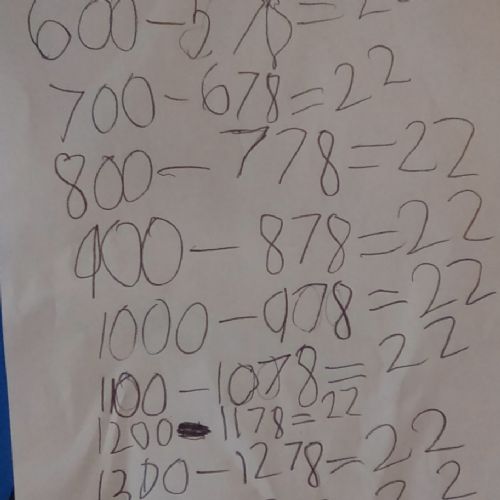 600-578=2
700-678=22
800-778=22
900-878=22
1000-978=22
1100-1078=22
1200-1178=22
1300-1278=22
22